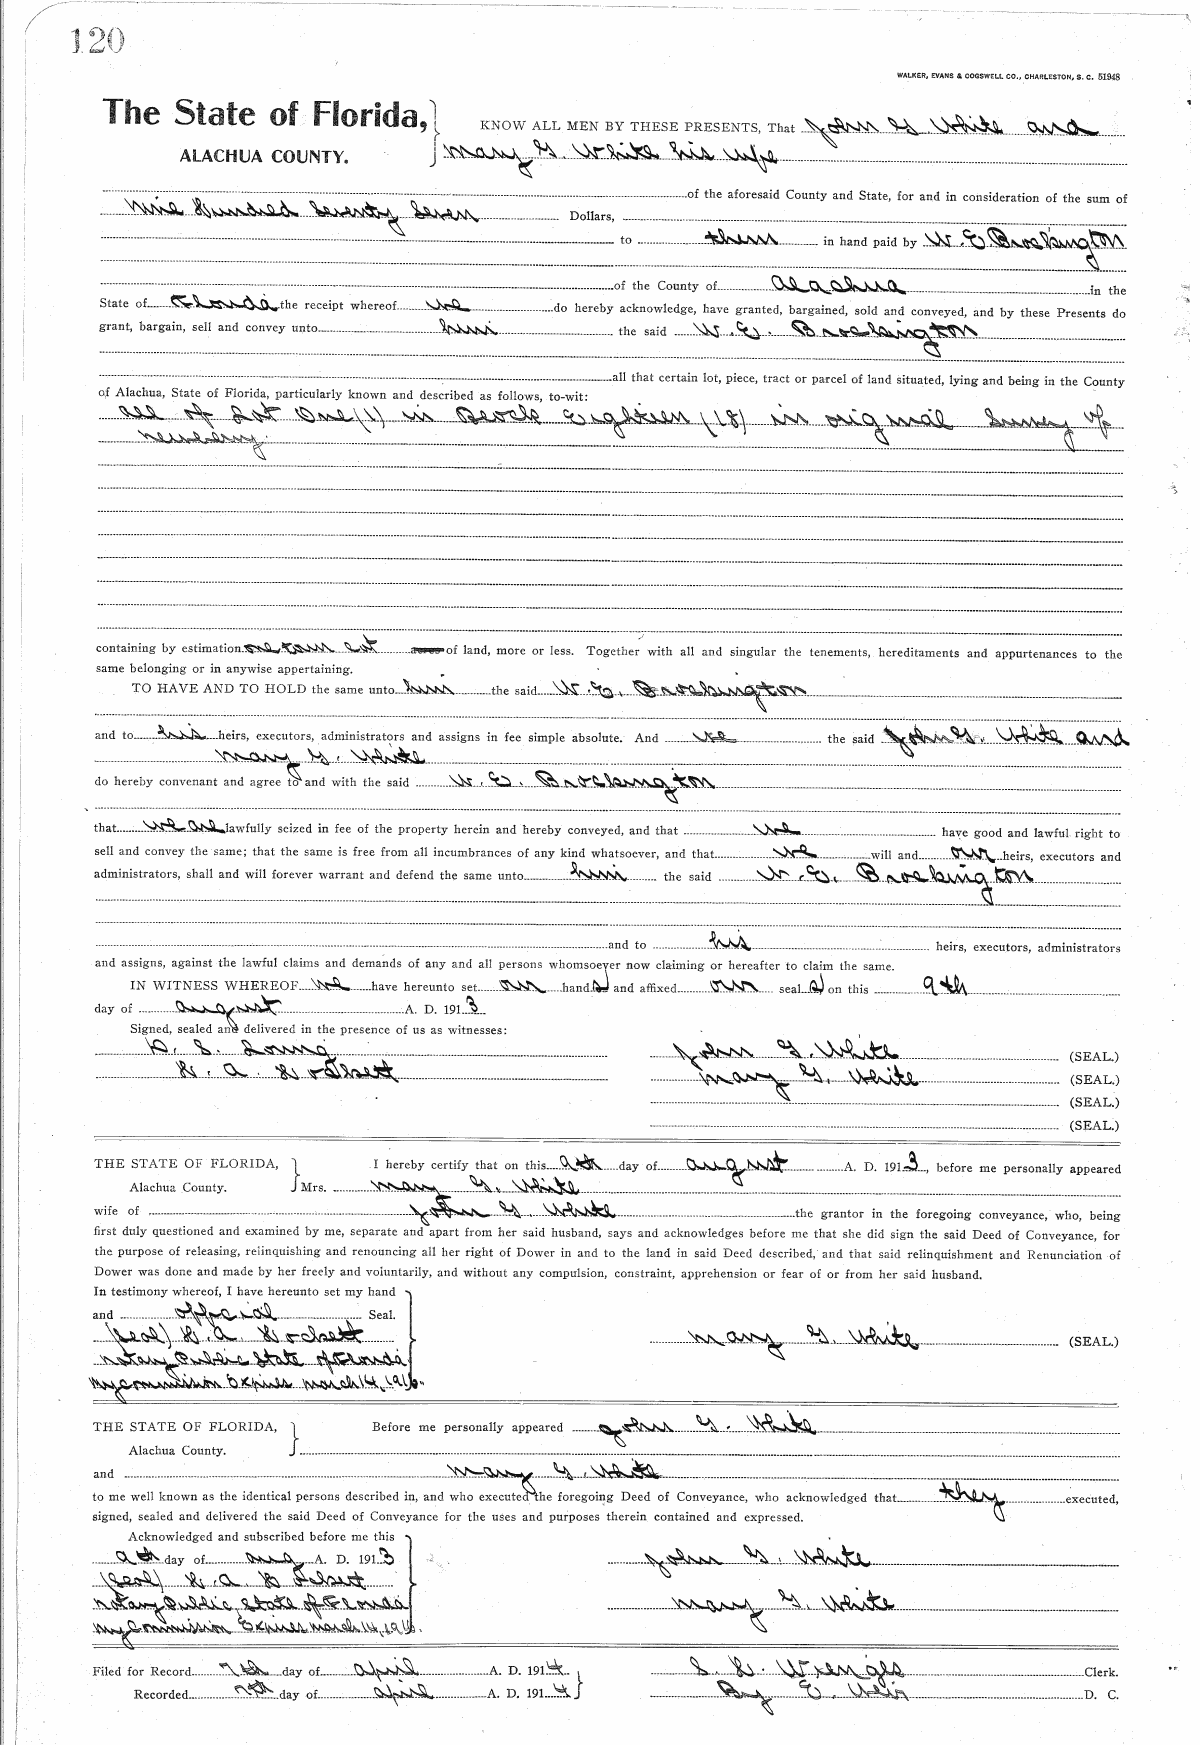 120
WALKER, EVANS & COGSWELL CO., CHARLESTON, S. C. 51948
The State of Florida, KNOW ALL MEN BY THESE PRESENTS, That John G White and
ALACHUA COUNTY. Mary G. White his wife
of the aforesaid County and State, for and in consideration of the sum of
Nine Hundred Seventy Seven Dollars,
to them in hand paid by W. E. Brockington
of the County of Alachua in the
State of Florida the receipt whereof we do hereby acknowledge, have granted, bargained, sold and conveyed, and by these Presents do
grant, bargain, sell and convey unto him the said W. E. Brockington
all that certain lot, piece, tract or parcel of land situated, lying and being in the County
of Alachua, State of Florida, particularly known and described as follows, to-wit:
All of Lot One (1) in Block Eighteen (18) in original Survey of
Newberry.
containing by estimation one town lot acres of land, more or less. Together with all and singular the tenements, hereditaments and appurtenances to the
same belonging or in anywise appertaining.
TO HAVE AND TO HOLD the same unto him the said W. E. Brockington
and to his heirs, executors, administrators and assigns in fee simple absolute. And we the said John G. White and
Mary G. White
do hereby convenant and agree to and with the said W. E. Brockington
that we are lawfully seized in fee of the property herein and hereby conveyed, and that we have good and lawful right to
sell and convey the same; that the same is free from all incumbrances of any kind whatsoever, and that we will and our heirs, executors and
administrators, shall and will forever warrant and defend the same unto him the said W. E. Brockington
and to his heirs, executors, administrators
and assigns, against the lawful claims and demands of any and all persons whomsoever now claiming or hereafter to claim the same.
IN WITNESS WHEREOF we have hereunto set our hand s and affixed our seal s on this 9th
day of August A. D. 1913
Signed, sealed and delivered in the presence of us as witnesses:
S. John G. White (SEAL.)
H. A. Mary G. White (SEAL.)
(SEAL.)
(SEAL.)
THE STATE OF FLORIDA, I hereby certify that on this 9th day of August A. D. 1913, before me personally appeared
Alachua County. Mrs. Mary G. White
wife of John G White the grantor in the foregoing conveyance, who, being
first duly questioned and examined by me, separate and apart from her said husband, says and acknowledges before me that she did sign the said Deed of Conveyance, for
the purpose of releasing, relinquishing and renouncing all her right of Dower in and to the land in said Deed described, and that said relinquishment and Renunciation of
Dower was done and made by her freely and voluntarily, and without any compulsion, constraint, apprehension or fear of or from her said husband.
In testimony whereof, I have hereunto set my hand
and official Seal.
(Seal) H. A. Mary G. White (SEAL.)
Notary Public State of Florida
My Commission Expires March 14, 1916.
THE STATE OF FLORIDA, Before me personally appeared John G. White
Alachua County.
and Mary G. White
to me well known as the identical persons described in, and who executed the foregoing Deed of Conveyance, who acknowledged that they executed,
signed, sealed and delivered the said Deed of Conveyance for the uses and purposes therein contained and expressed.
Acknowledged and subscribed before me this
9th day of Aug A. D. 1913 John G. White
(Seal) H. A.
Notary Public, State of Florida Mary G. White
My Commission Expires March 14, 1916.
Filed for Record 7th day of April A. D. 1914 S. H. Wienges Clerk.
Recorded 7th day of April A. D. 1914 By E. Weir D. C.